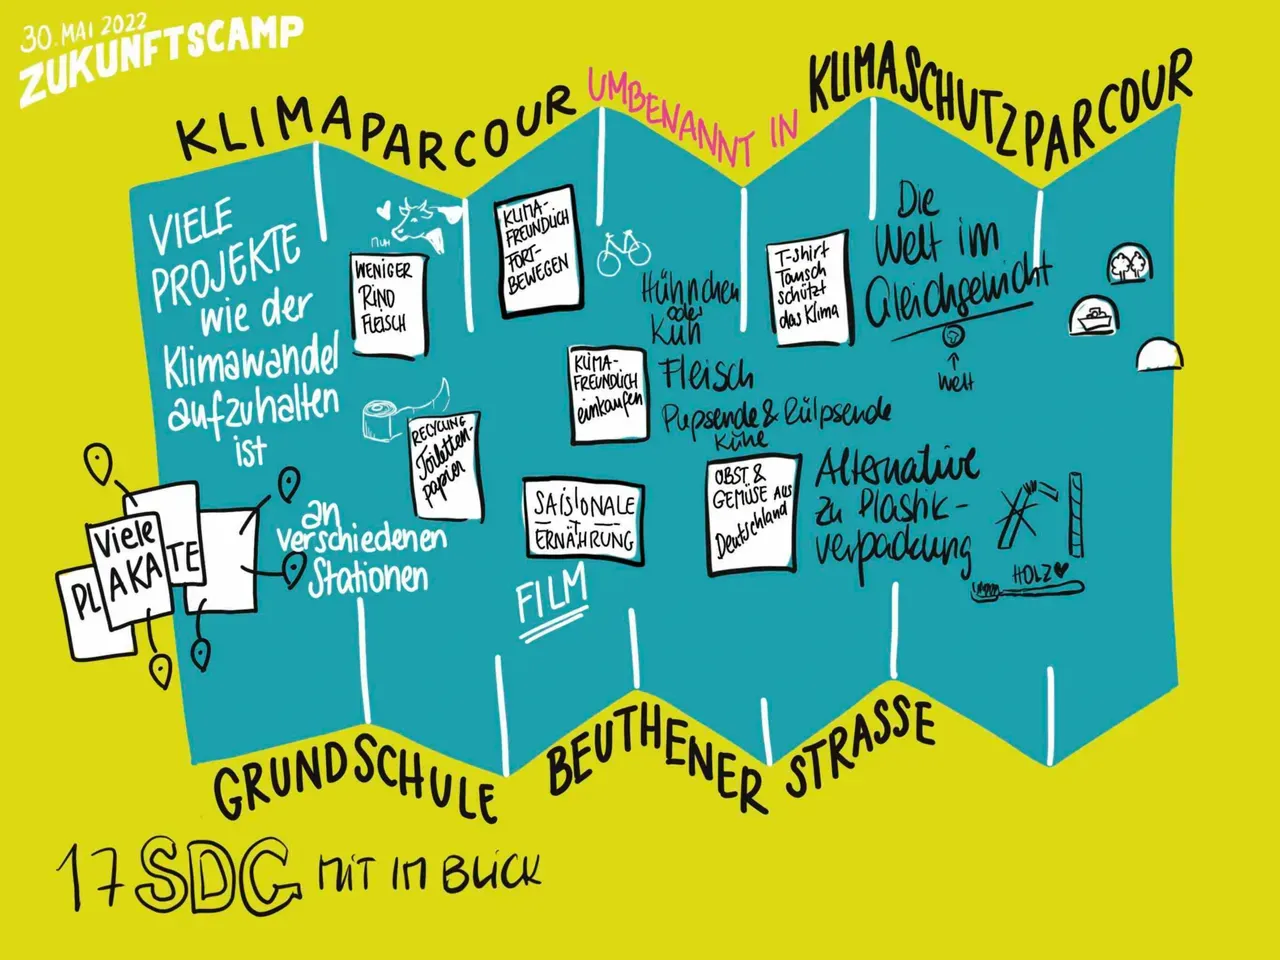 30. MAI 2022
ZUKUNFTSCAMP
KLIMAPARCOUR UMBENANNT IN KLIMASCHUTZPARCOUR
VIELE
PROJEKTE
wie der
Klimawandel
aufzuhalten
ist
an
verschiedenen
Stationen
Viele
PLAKATE
MUH
WENIGER
RIND
FLEISCH
RECYCLING
Toiletten-
papier
KLIMA-
FREUNDLICH
FORT-
BEWEGEN
KLIMA-
FREUNDLICH
einkaufen
SAISIONALE
ERNÄHRUNG
FILM
Hühnchen
oder
Kuh
Fleisch
Pupsende & Rülpsende
Kühe
OBST &
GEMÜSE AUS
Deutschland
T-Shirt
Tausch
schützt
das Klima
Die
Welt im
Gleichgewicht
Welt
Alternative
zu Plastik-
verpackung
HOLZ
GRUNDSCHULE BEUTHENER STRASSE
17 SDG MIT IM BLICK